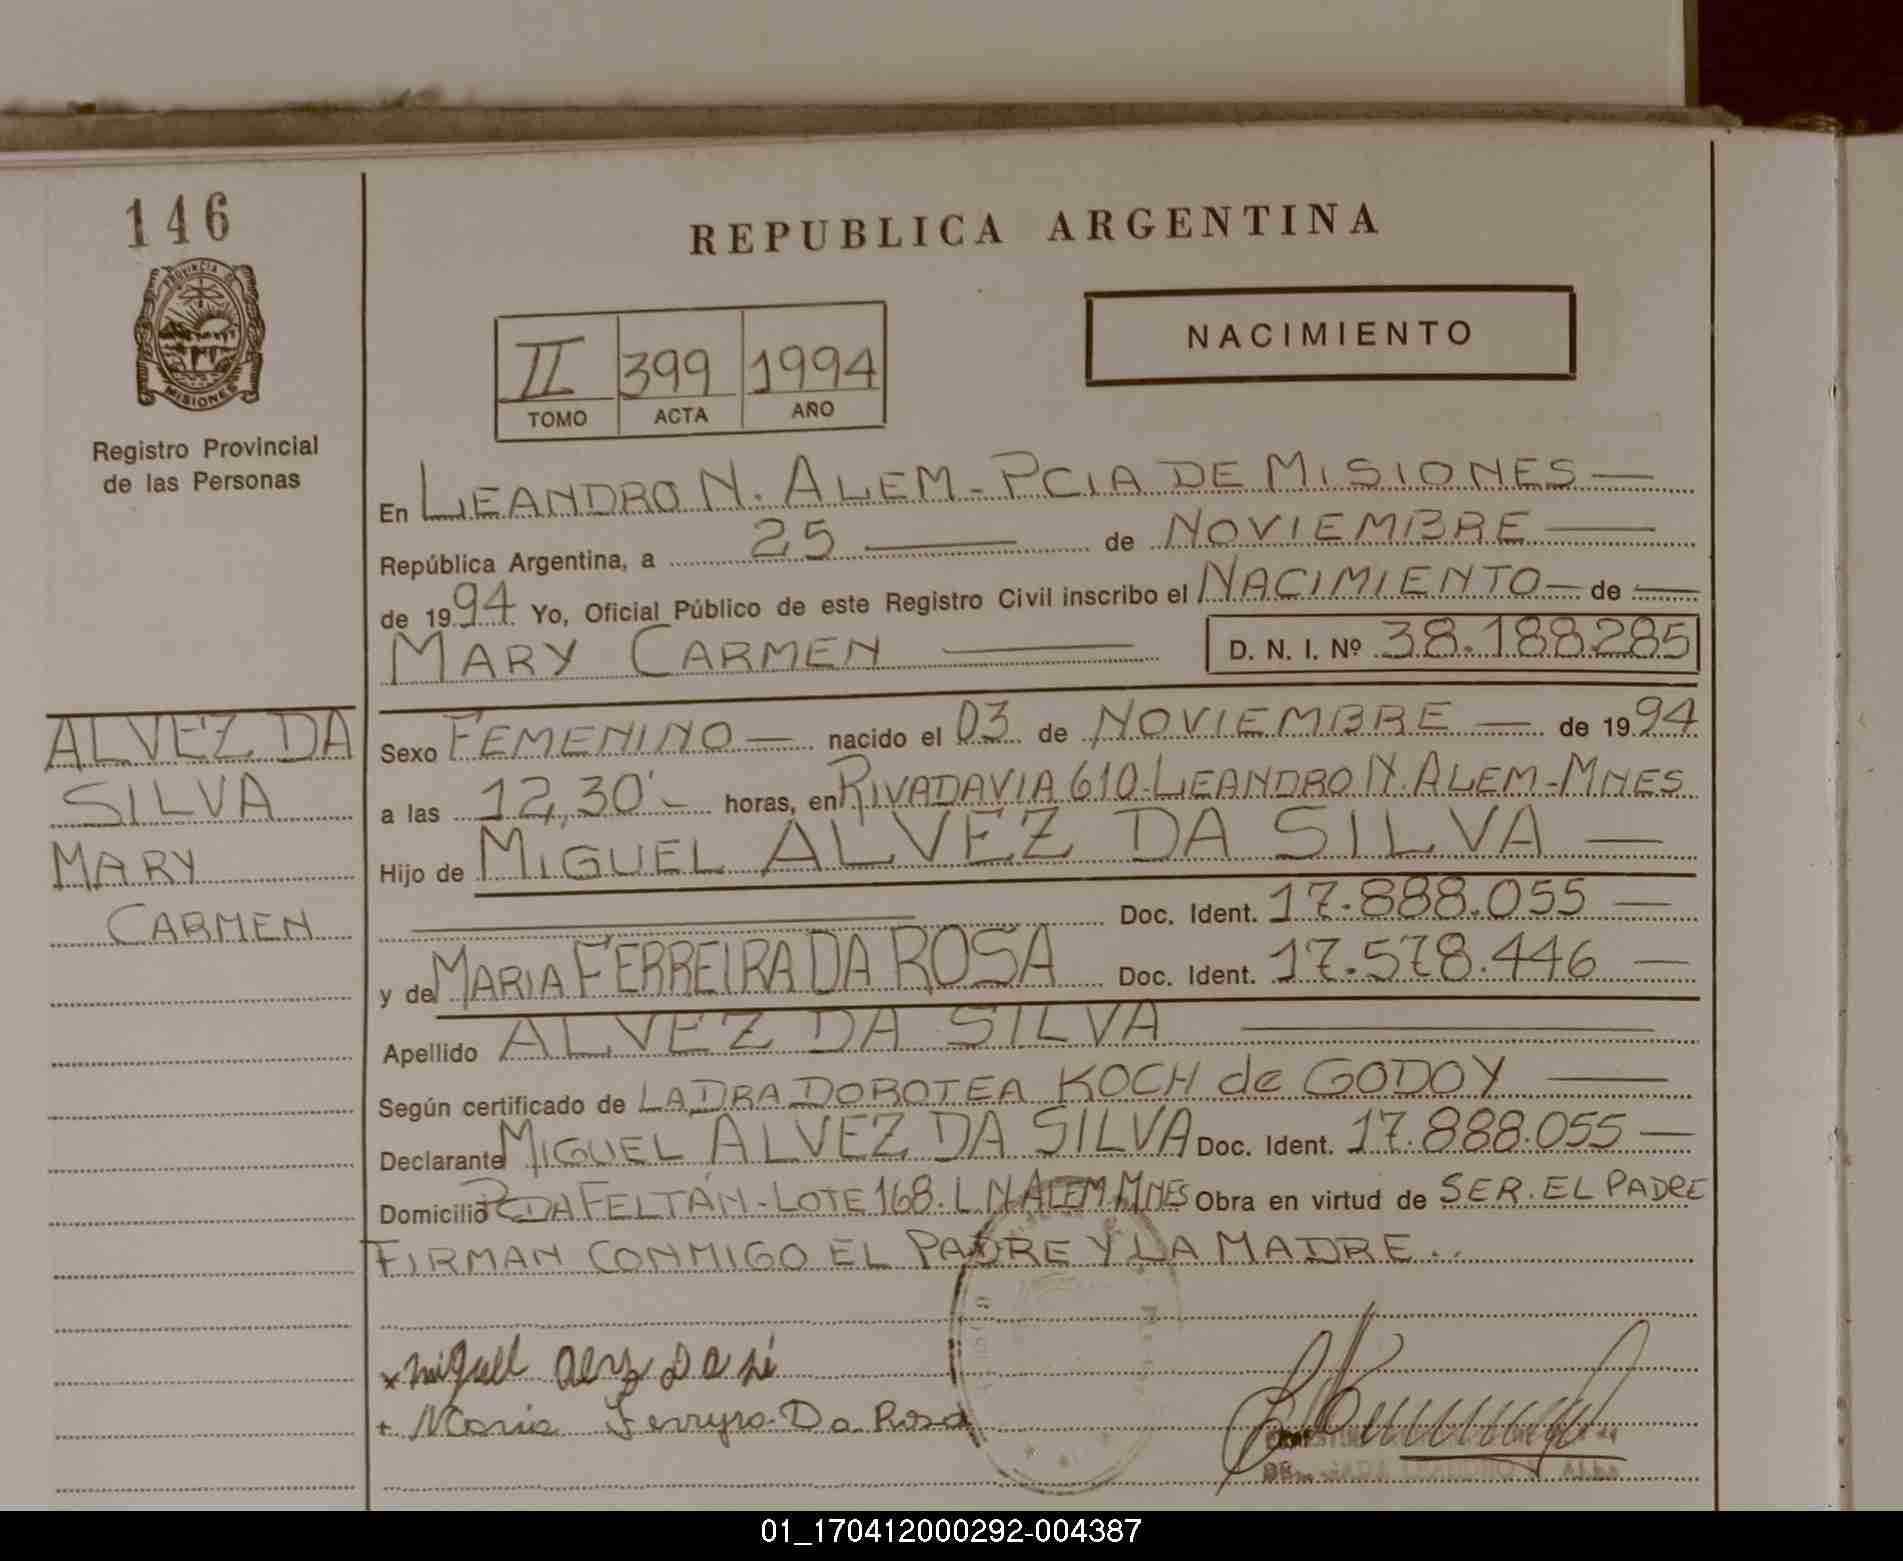 146
REPUBLICA ARGENTINA
PROVINCIA DE
MISIONES
Registro Provincial
de las Personas
II 399 1994
TOMO ACTA AÑO
NACIMIENTO
En LEANDRO N. ALEM - PCIA DE MISIONES —
República Argentina, a 25 — de NOVIEMBRE —
de 1994 Yo, Oficial Público de este Registro Civil inscribo el NACIMIENTO — de —
MARY CARMEN — D. N. I. Nº 38.188.285
ALVEZ DA
SILVA
MARY
CARMEN
Sexo FEMENINO — nacido el 03 de NOVIEMBRE — de 1994
a las 12,30'- horas, en RIVADAVIA 610-LEANDRO N. ALEM-MNES
Hijo de MIGUEL ALVEZ DA SILVA —
— Doc. Ident. 17.888.055 —
y de MARIA FERREIRA DA ROSA Doc. Ident. 17.578.446 —
Apellido ALVEZ DA SILVA —
Según certificado de LA DRA DOROTEA KOCH de GODOY —
Declarante MIGUEL ALVEZ DA SILVA Doc. Ident. 17.888.055 —
Domicilio PDA FELTÁN - LOTE 168. L N ALEM MNES Obra en virtud de SER. EL PADRE
FIRMAN CONMIGO EL PADRE Y LA MADRE..
x miguel
+ Maria Ferreyra Da Rosa
01_170412000292-004387